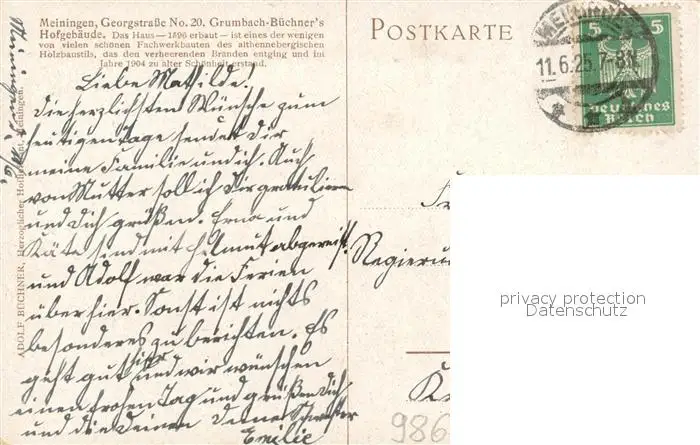 Meiningen, Georgstraße No. 20. Grumbach-Büchner's
Hofgebäude. Das Haus — 1596 erbaut — ist eines der wenigen
von vielen schönen Fachwerkbauten des althennebergischen
Holzbaustils, das den verheerenden Bränden entging und im
Jahre 1904 zu alter Schönheit erstand.
Liebe Mathilde!
Die herzlichsten Wünsche zum
heutigen Tage sendet dir
meine Familie und ich. Auch
von Mutter soll ich Dir gratulieren
und Dich grüßen. Erna und
Käte sind mit Helmut abgereist
und Adolf war die Ferien
über hier. Sonst ist nichts
besonderes zu berichten. Es
geht gut hier und wir wünschen
einen frohen Tag und grüßen Dich
und die Deinen Deine Schwester
Emilie
Meiningen,
ADOLF BÜCHNER, Herzoglicher Meiningen.
POSTKARTE
MEININGEN
11.6.25.7-8
5 5
Deutsches
Reich
Fr
Regierun
K
986
privacy protection
Datenschutz